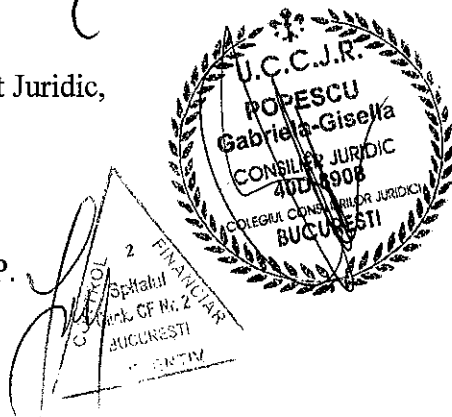 t Juridic,
U.C.C.J.R.
POPESCU
Gabriela-Gisella
CONSILIER JURIDIC
COLEGIUL CONSILIERILOR JURIDICI
BUCUREȘTI
P.
CONTROL
FINANCIAR
2
Spitalul
Clinic CF Nr. 2
BUCUREȘTI